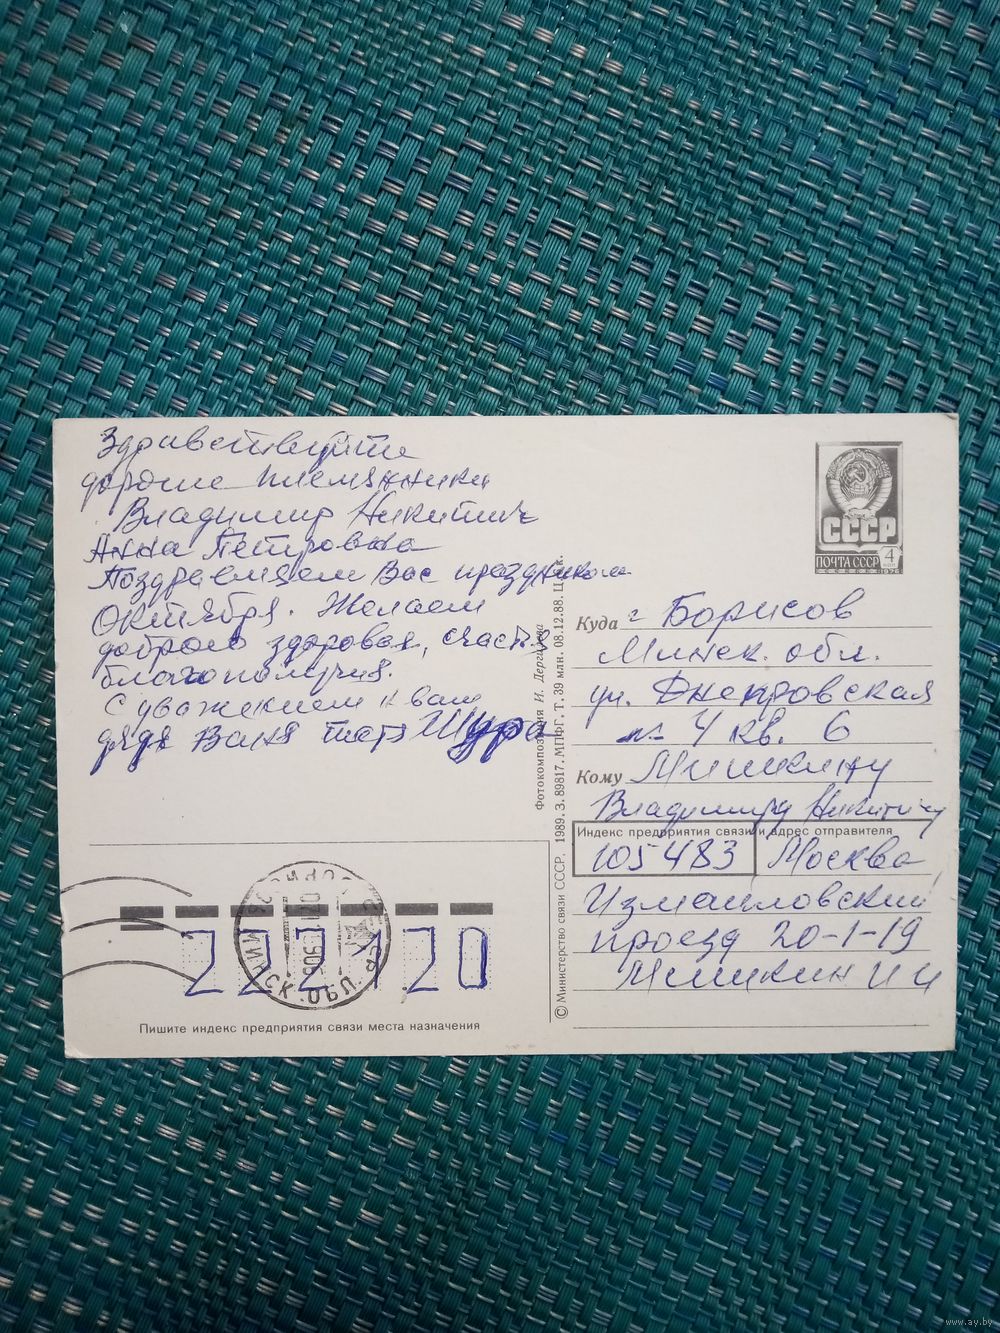 Здравствуйте
дорогие племянники
Владимир Никитич
Анна Петровна
Поздравляем Вас праздником
Октября. Желаем
доброго здоровая, счастья
благополучия.
С уважением к вам
дядя Ваня тетя Шура
СССР
ПОЧТА СССР 4 КОП
1976
Куда г Борисов
Минск. обл.
ул. Днепровская
4 кв. 6
Кому Мишкину
Владимиру Никитичу
Индекс предприятия связи и адрес отправителя
105483 Москва
Измайловский
проезд 20-1-19
Мишкин И И
© Министерство связи СССР. 1989. З. 89817. МПФГ. Т. 39 млн. 08.12.88. Ц. 7 к.
Фотокомпозиция И. Дергилева
222120
БОРИСОВ МИНСК. ОБЛ.
Пишите индекс предприятия связи места назначения
www.ay.by